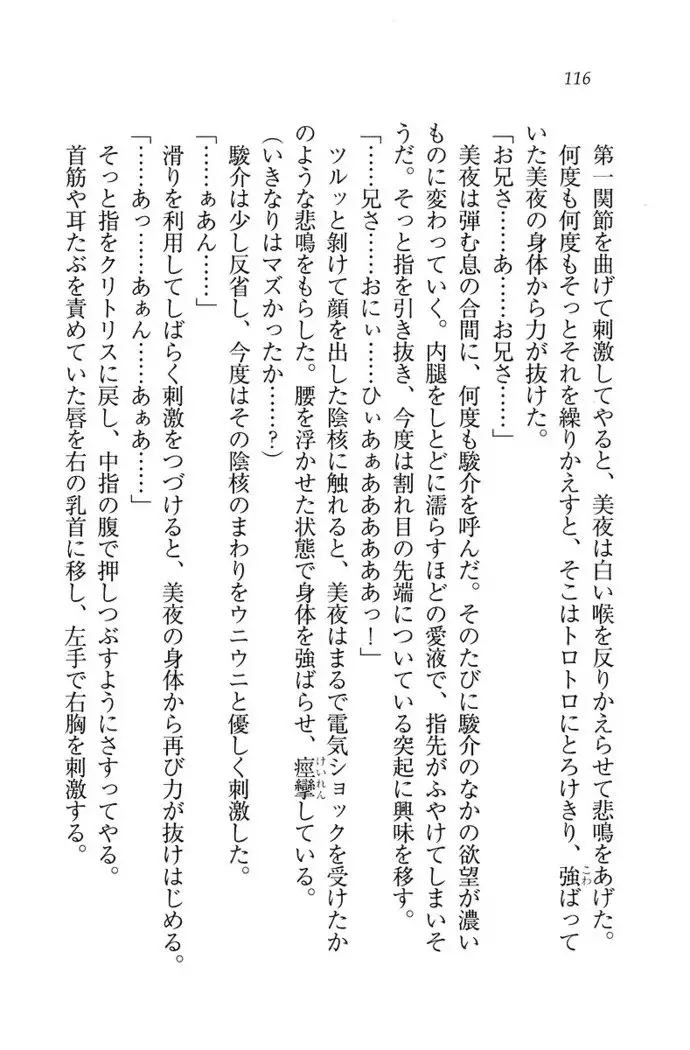 116
第一関節を曲げて刺激してやると、美夜は白い喉を反りかえらせて悲鳴をあげた。
何度も何度もそっとそれを繰りかえすと、そこはトロトロにとろけきり、強ばって
いた美夜の身体から力が抜けた。
「お兄さ……あ……お兄さ……」
美夜は弾む息の合間に、何度も駿介を呼んだ。そのたびに駿介のなかの欲望が濃い
ものに変わっていく。内腿をしとどに濡らすほどの愛液で、指先がふやけてしまいそ
うだ。そっと指を引き抜き、今度は割れ目の先端についている突起に興味を移す。
「……兄さ……おにぃ……ひぃあぁああああああっ！」
ツルッと剝けて顔を出した陰核に触れると、美夜はまるで電気ショックを受けたか
のような悲鳴をもらした。腰を浮かせた状態で身体を強ばらせ、痙攣している。
(いきなりはマズかったか……？)
駿介は少し反省し、今度はその陰核のまわりをウニウニと優しく刺激した。
「……ぁあん……」
滑りを利用してしばらく刺激をつづけると、美夜の身体から再び力が抜けはじめる。
「……あっ……あぁん……あぁあ……」
そっと指をクリトリスに戻し、中指の腹で押しつぶすようにさすってやる。
首筋や耳たぶを責めていた唇を右の乳首に移し、左手で右胸を刺激する。